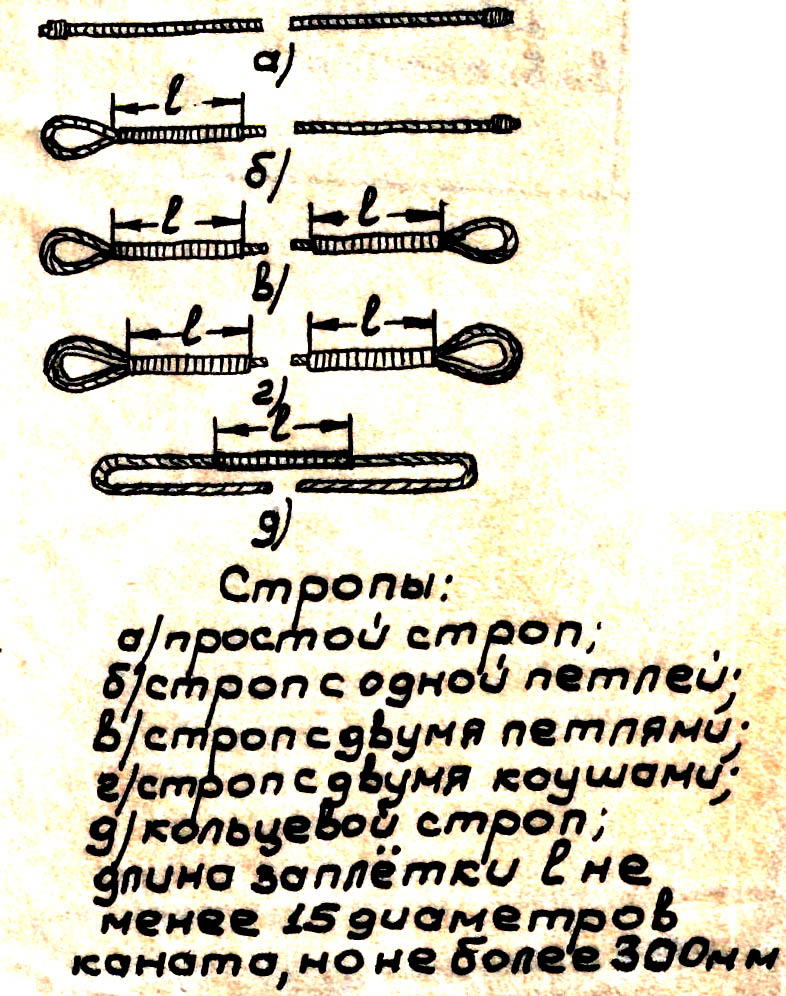 а)
l
б)
l l
в)
l l
г)
l
д)
Стропы:
а) простой строп;
б) строп с одной петлей;
в) строп с двумя петлями;
г) строп с двумя коушами;
д) кольцевой строп;
длина заплётки l не
менее 15 диаметров
каната, но не более 300мм